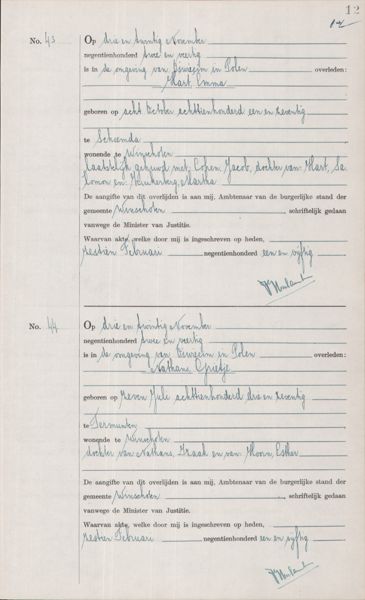 12
12
No. 43
Op drie en twintig November
negentienhonderd twee en veertig
is in de omgeving van Oswiecim in Polen overleden:
Hart, Emma
geboren op acht October achttienhonderd een en zeventig
te Scheemda
wonende te Winschoten
laatstelijk gehuwd met Copen, Jacob, dochter van Hart, Sa-
lomon en Kruikenberg, Martha
De aangifte van dit overlijden is aan mij, Ambtenaar van de burgerlijke stand der
gemeente Winschoten, schriftelijk gedaan
vanwege de Minister van Justitie.
Waarvan akte, welke door mij is ingeschreven op heden,
zestien Februari negentienhonderd een en vijftig
No. 44
Op drie en twintig November
negentienhonderd twee en veertig
is in de omgeving van Oswiecim in Polen overleden:
Nathans, Grietje
geboren op zeven Juli achttienhonderd drie en zeventig
te Termunten
wonende te Winschoten
dochter van Nathans, Izaak en van Hoorn, Esther
De aangifte van dit overlijden is aan mij, Ambtenaar van de burgerlijke stand der
gemeente Winschoten, schriftelijk gedaan
vanwege de Minister van Justitie.
Waarvan akte, welke door mij is ingeschreven op heden,
zestien Februari negentienhonderd een en vijftig